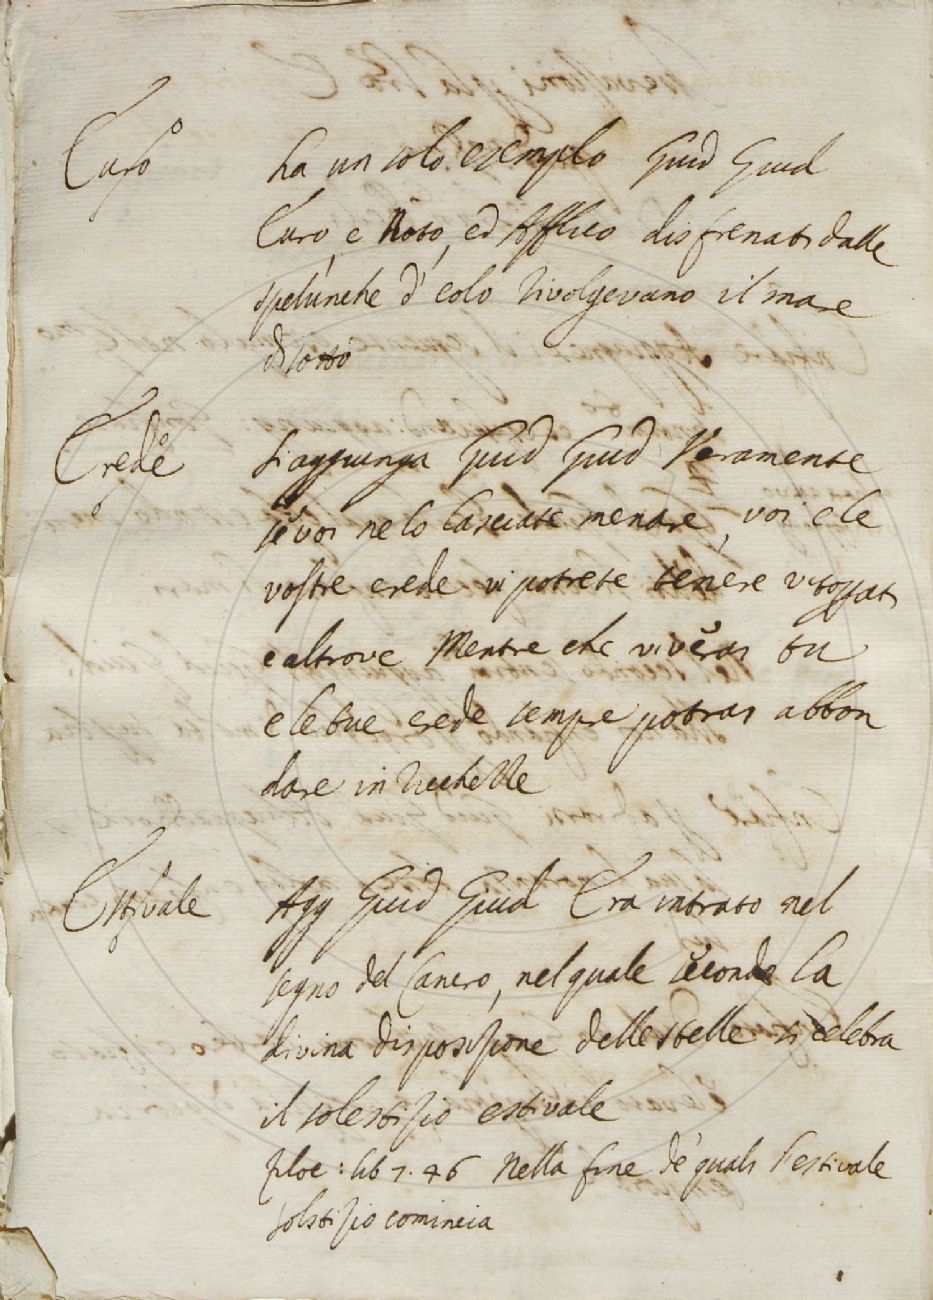 Euro ha un solo esemplo Guid Giud
Euro, e Noto, ed Affrico disfrenati dalle
spelunche d'eolo rivolgevano il mare
di sotto
Erede Si aggiunga Guid Giud Veramente
se voi ne lo lasciate menare, voi e le
vostre erede vi potrete tenere vitoppati
e altrove Mentre che viverai tu
e le tue erede sempre potrai abbon
dare in ricchezze
Estivale Agg Guid Giud Era intrato nel
segno del Cancro, nel quale secondo la
divina disposizione delle stelle si celebra
il solestizio estivale
Filoc: lib 7. 46 Nella fine de' quali l'estivale
solstizio comincia